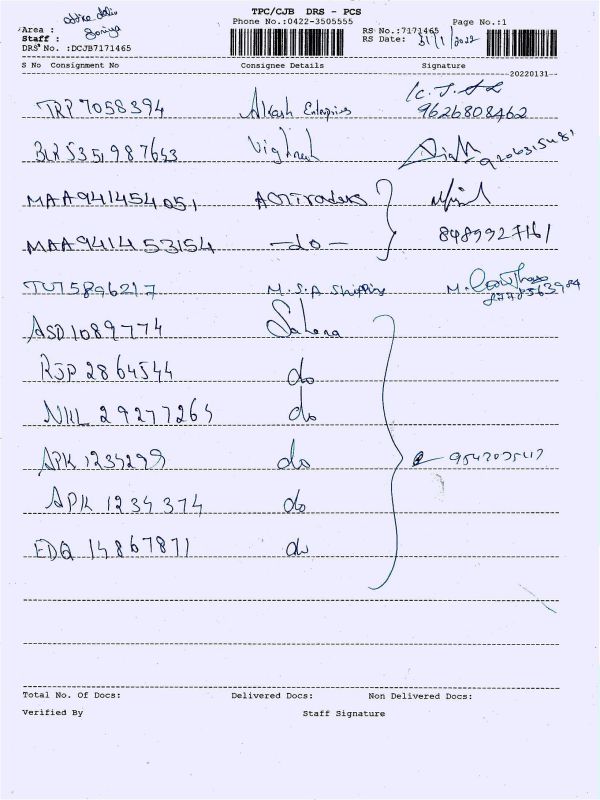 TPC/CJB DRS - PCS
Phone No.:0422-3505555
Page No.:1
Area :
Staff : Soniya
RS No.:7171465
RS Date: 31/1/2022
DRS No. :DCJB7171465
S No Consignment No Consignee Details Signature
20220131
TRP 7058394 Akash Enterprises 9626808462
BLR 5351987643 Vighnesh
MAA941454051 AOTTraders
MAA941453154 -do- 8489927161
TUT5896217 M.S.A Shipping M.
ASD1089774 Sahana
RJP 2864544 do
NKL 29277264 do
APK 1234299 do
APK 1234374 do
EDQ 14867871 do
Total No. Of Docs: Delivered Docs: Non Delivered Docs:
Verified By Staff Signature